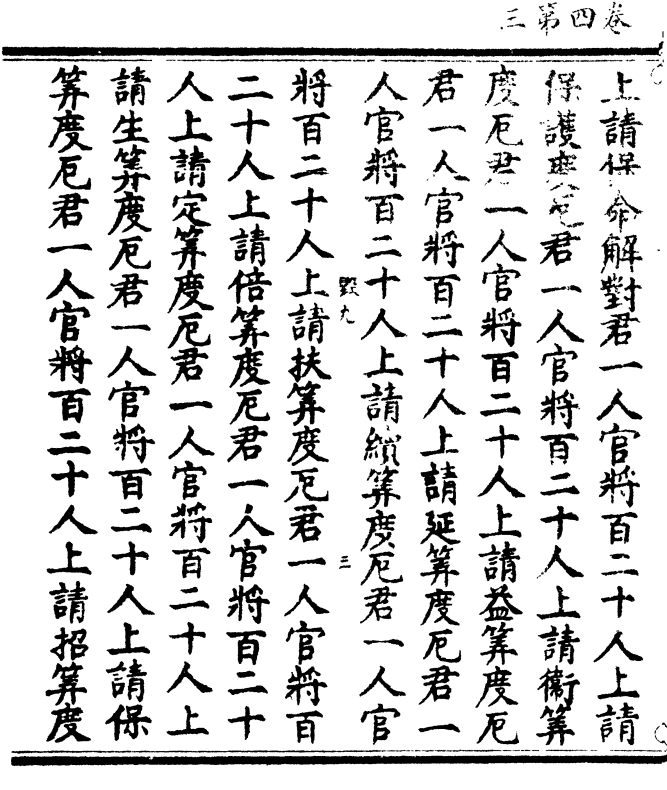 卷四第三
上請保命解對君一人官將百二十人上請
保護厄君一人官將百二十人上請衛筭
度厄君一人官將百二十人上請益筭度厄
君一人官將百二十人上請延筭度厄君一
人官將百二十人上請續筭度厄君一人官
九 三
將百二十人上請扶筭度厄君一人官將百
二十人上請倍筭度厄君一人官將百二十
人上請定筭度厄君一人官將百二十人上
請生筭度厄君一人官將百二十人上請保
筭度厄君一人官將百二十人上請招筭度